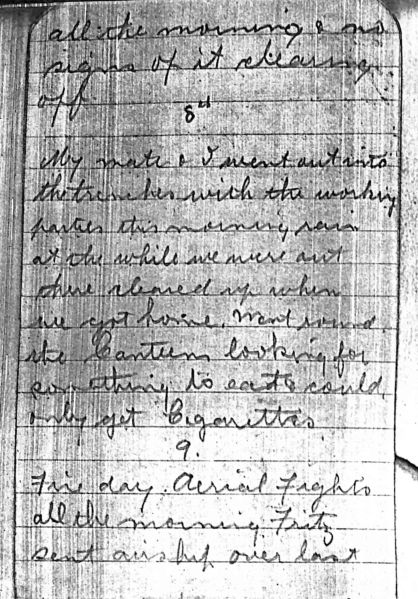 all the morning & no
signs of it clearing
off
8th
My mate & I went out into
the trenches with the working
parties this morning rain
at the while we were out
there cleared up when
we got home. Went round
the Canteens looking for
something to eat & could
only get Cigarettes
9.
Fine day. Aerial fights
all the morning. Fritz
sent airship over last